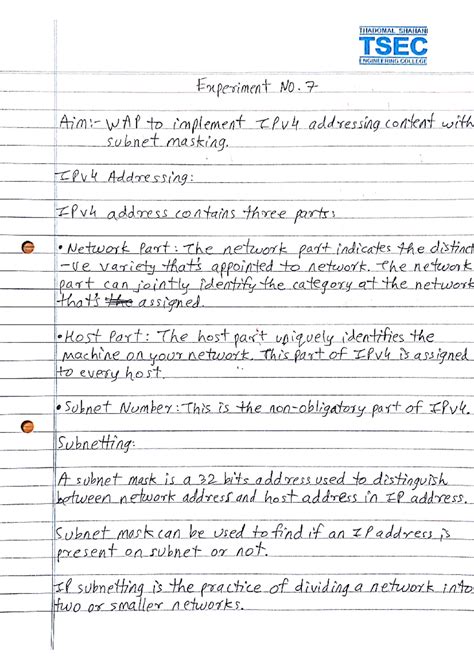 THADOMAL SHAHANI
TSEC
ENGINEERING COLLEGE
Experiment No. 7
Aim:- WAP to implement IPv4 addressing content with
subnet masking.
IPv4 Addressing:
IPv4 address contains three parts:
• Network Part: The network part indicates the distinct
-ve variety that's appointed to network. The network
part can jointly identify the category at the network
that's the assigned.
• Host Part: The host part uniquely identifies the
machine on your network. This part of IPv4 is assigned
to every host.
• Subnet Number: This is the non-obligatory part of IPv4.
Subnetting:
A subnet mask is a 32 bits address used to distinguish
between network address and host address in IP address.
Subnet mask can be used to find if an IP address is
present on subnet or not.
IP subnetting is the practice of dividing a network into
two or smaller networks.